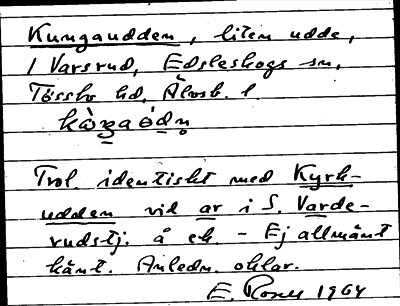 Kungaudden, liten udde,
i Varsrud, Edsleskogs sn,
Tössbo hd, Älvsb. l
Trol. identiskt med Kyrk-
udden vid ar i S. Varde-
rudstj. å ek. - Ej allmänt
känt. Anledn. oklar.
E. Rosen 1964